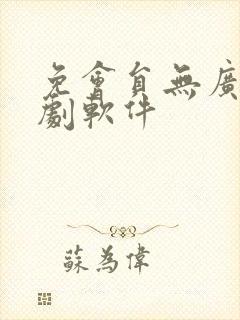 免會員無廣
劇軟件
蘇為偉